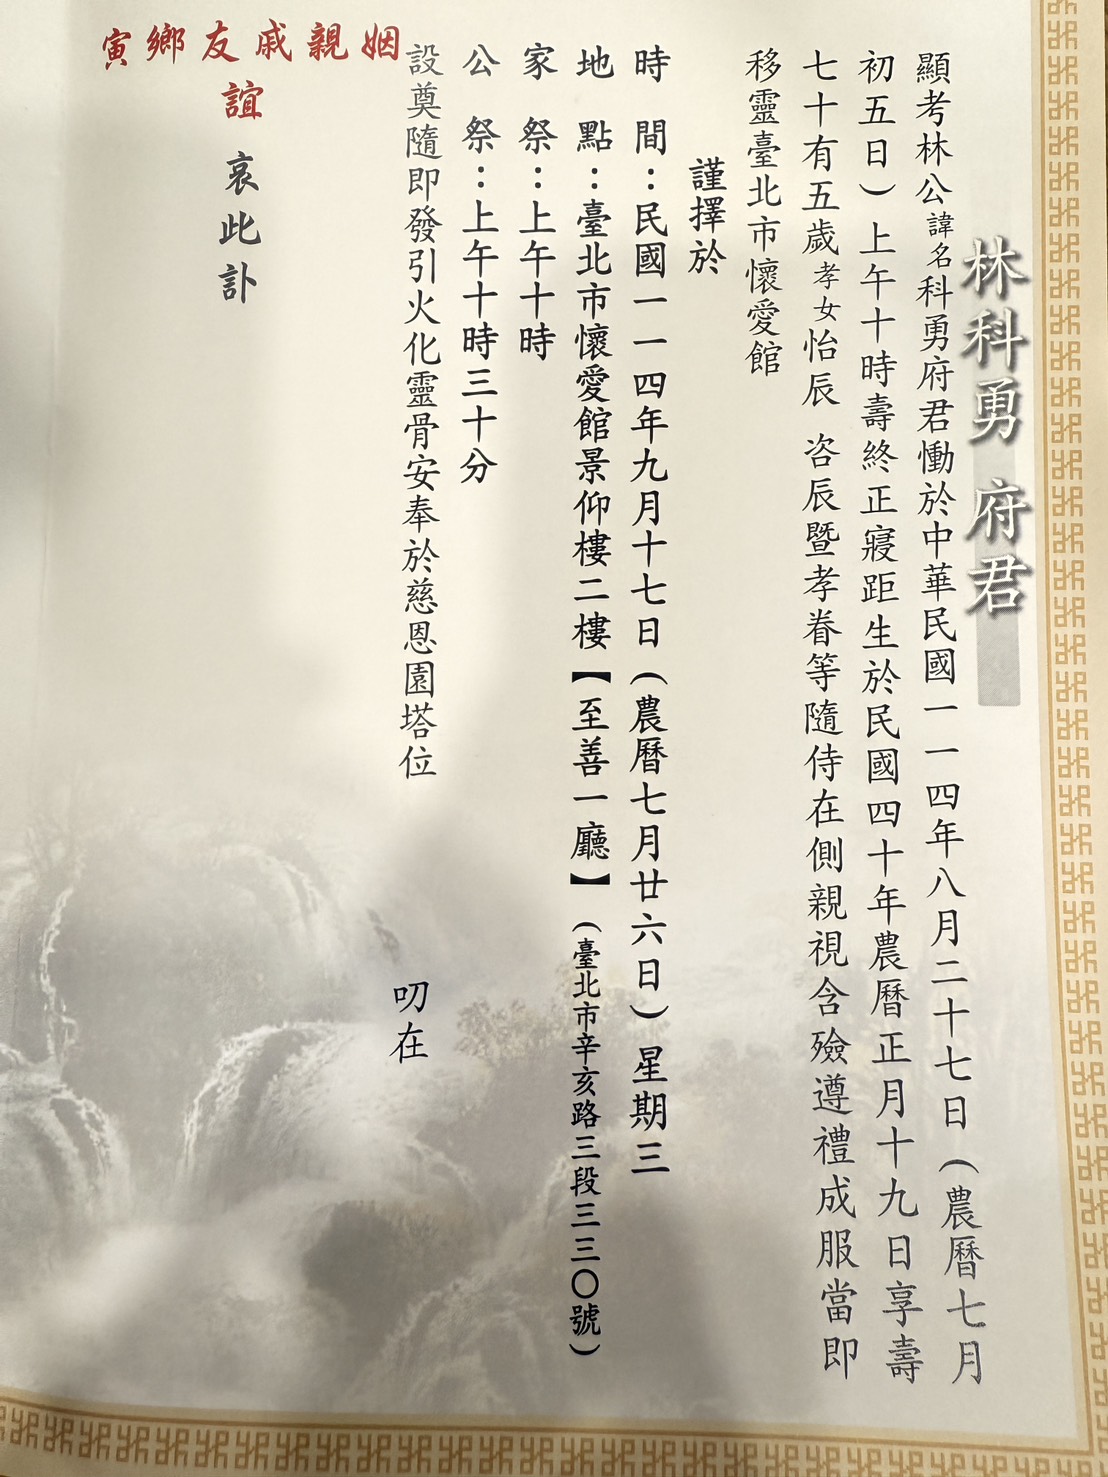 林科勇 府君
顯考林公諱名科勇府君慟於中華民國一一四年八月二十七日（農曆七月
初五日）上午十時壽終正寢距生於民國四十年農曆正月十九日享壽
七十有五歲孝女怡辰 咨辰暨孝眷等隨侍在側親視含殮遵禮成服當即
移靈臺北市懷愛館
謹擇於
時間：民國一一四年九月十七日（農曆七月廿六日）星期三
地點：臺北市懷愛館景仰樓二樓【至善一廳】（臺北市辛亥路三段三三〇號）
家祭：上午十時
公祭：上午十時三十分
設奠隨即發引火化靈骨安奉於慈恩園塔位
叨在
姻親戚友鄉寅
誼 哀此訃